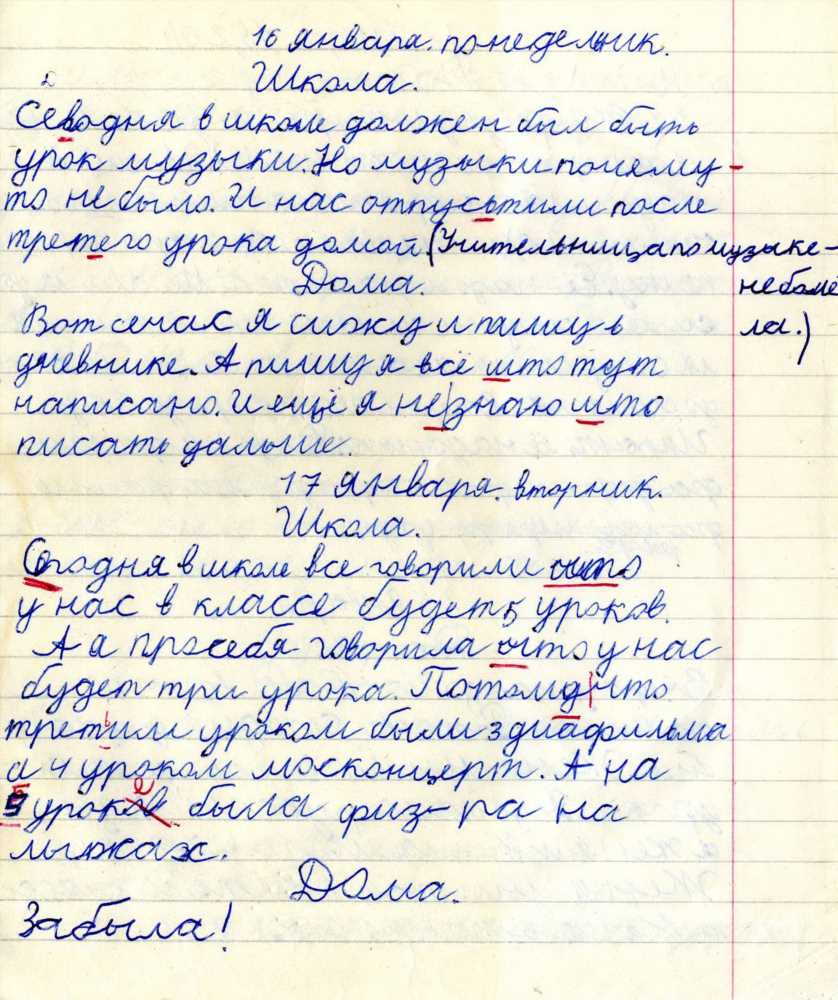 16 января. понедельник.
Школа.
Севодня в школе должен был быть
урок музыки. Но музыки почему-
то не было. И нас отпусьтили после
третего урока домой. (Учительница по музыке-
Дома. не боле
Вот сечас я сижу и пишу в ла.)
дневнике. А пишу я всё што тут
написано. И ещё я не знаю што
писать дальше.
17 января. вторник.
Школа.
Сегодня в школе все говорили што
у нас в классе будет 5 уроков.
А я про себя говорила што у нас
будет три урока. Потому что
третьим уроком были 3 диафильма
а 4 уроком москонцерт. А на
5 уроке была физ-ра на
лыжах.
Дома.
Забыла!